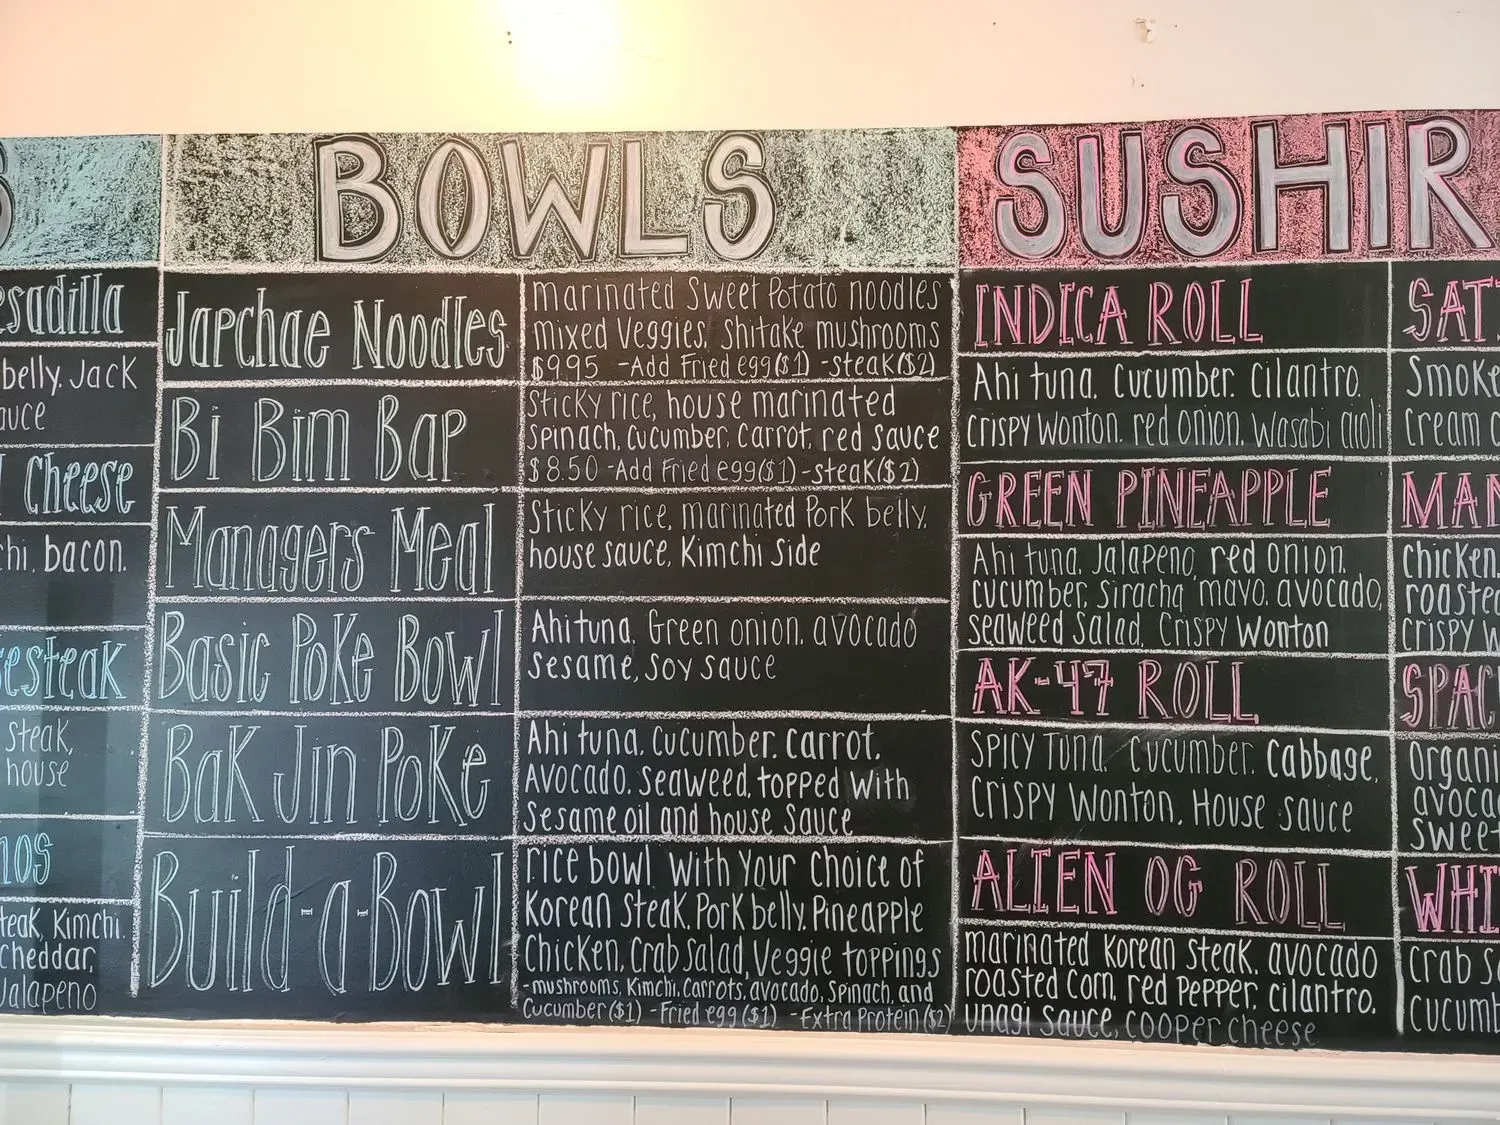 BOWLS
SUSHIR
esadilla
belly. Jack
auce
Cheese
chi, bacon.
esesteak
steak,
house
nos
teak, Kimchi.
cheddar,
Jalapeno
Japchae Noodles
marinated Sweet Potato noodles
mixed Veggies. Shitake mushrooms
$9.95 -Add Fried egg($1) -steak($2)
Bi Bim Bap
Sticky rice, house marinated
spinach. cucumber. Carrot, red sauce
$8.50 -Add Fried egg($1) -steak($2)
Managers Meal
Sticky rice, marinated Pork belly,
house sauce, Kimchi Side
Basic Poke Bowl
Ahi tuna, Green onion. avocado
sesame, soy sauce
Bak Jin Poke
Ahi tuna. Cucumber. Carrot.
Avocado. seaweed, topped with
Sesame oil and house Sauce
Build-a-Bowl
rice bowl with your choice of
Korean Steak, Pork belly, Pineapple
Chicken, Crab Salad, Veggie toppings
-mushrooms, Kimchi, Carrots, avocado, spinach, and
Cucumber ($1) -Fried egg ($1) -Extra Protein ($2)
INDICA ROLL
Ahi tuna. Cucumber. Cilantro.
Crispy Wonton. red onion. Wasabi aioli
GREEN PINEAPPLE
Ahi tuna. Jalapeno, red onion.
cucumber. siracha mayo. avocado,
seaweed Salad. Crispy Wonton
AK-47 ROLL
Spicy Tuna. cucumber. Cabbage.
Crispy Wonton. House sauce
ALIEN OG ROLL
marinated Korean steak. avocado
roasted Corn. red Pepper. cilantro.
unagi sauce, cooper cheese
SAT
Smoke
Cream c
MAN
chicken,
roasted
crispy w
SPAC
organi
avoca
sweet
WHI
Crab S
cucumb